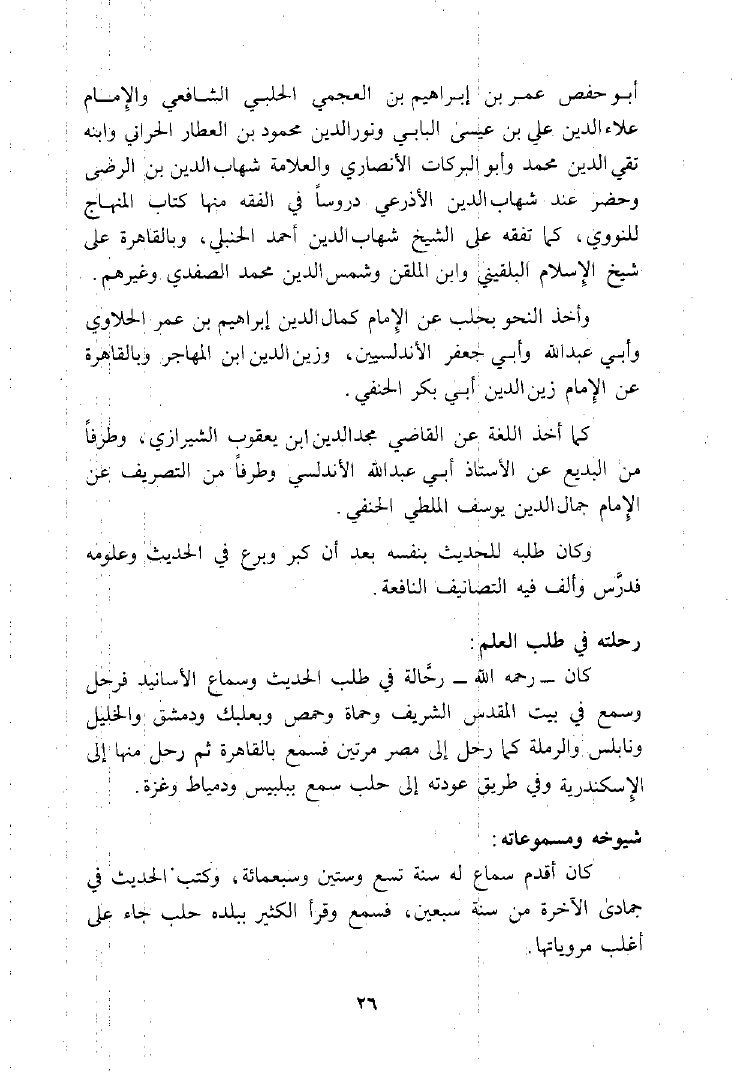 أبـو حفص عمـر بن إبـراهيم بن العجمي الحلبـي الشـافعي والإمـام
علاء الدين علي بن عيسىٰ البابي ونور الدين محمود بن العطار الحراني وابنه
تقي الدين محمد وأبو البركات الأنصاري والعلامة شهاب الدين بن الرضى
وحضر عند شهاب الدين الأذرعي دروساً في الفقه منها كتاب المنهـاج
للنووي، كما تفقه على الشيخ شهاب الدين أحمد الحنبلي، وبالقاهرة على
شيخ الإسلام البلقيني وابن الملقن وشمس الدين محمد الصفدي وغيرهم.
وأخذ النحو بحلب عن الإمام كمال الدين إبراهيم بن عمر الحلاوي
وأبـي عبد الله وأبـي جعفر الأندلسيين، وزين الدين ابن المهاجر وبالقاهرة
عن الإمام زين الدين أبـي بكر الحنفي.
كما أخذ اللغة عن القاضي مجد الدين ابن يعقوب الشيرازي، وطرفاً
من البديع عن الأستاذ أبـي عبد الله الأندلسي وطرفاً من التصريف عن
الإمام جمال الدين يوسف الملطي الحنفي.
وكان طلبه للحديث بنفسه بعد أن كبر وبرع في الحديث وعلومه
فدرَّس وألف فيه التصانيف النافعة.
رحلته في طلب العلم:
كان ــ رحمه الله ــ رحَّالة في طلب الحديث وسماع الأسانيد فرحل
وسمع في بيت المقدس الشريف وحماة وحمص وبعلبك ودمشق والخليل
ونابلس والرملة كما رحل إلى مصر مرتين فسمع بالقاهرة ثم رحل منها إلى
الإسكندرية وفي طريق عودته إلى حلب سمع ببلبيس ودمياط وغزة.
شيوخه ومسموعاته:
كان أقدم سماع له سنة تسع وستين وسبعمائة، وكتب الحديث في
جمادىٰ الآخرة من سنة سبعين، فسمع وقرأ الكثير ببلده حلب جاء على
أغلب مروياتها.
٢٦